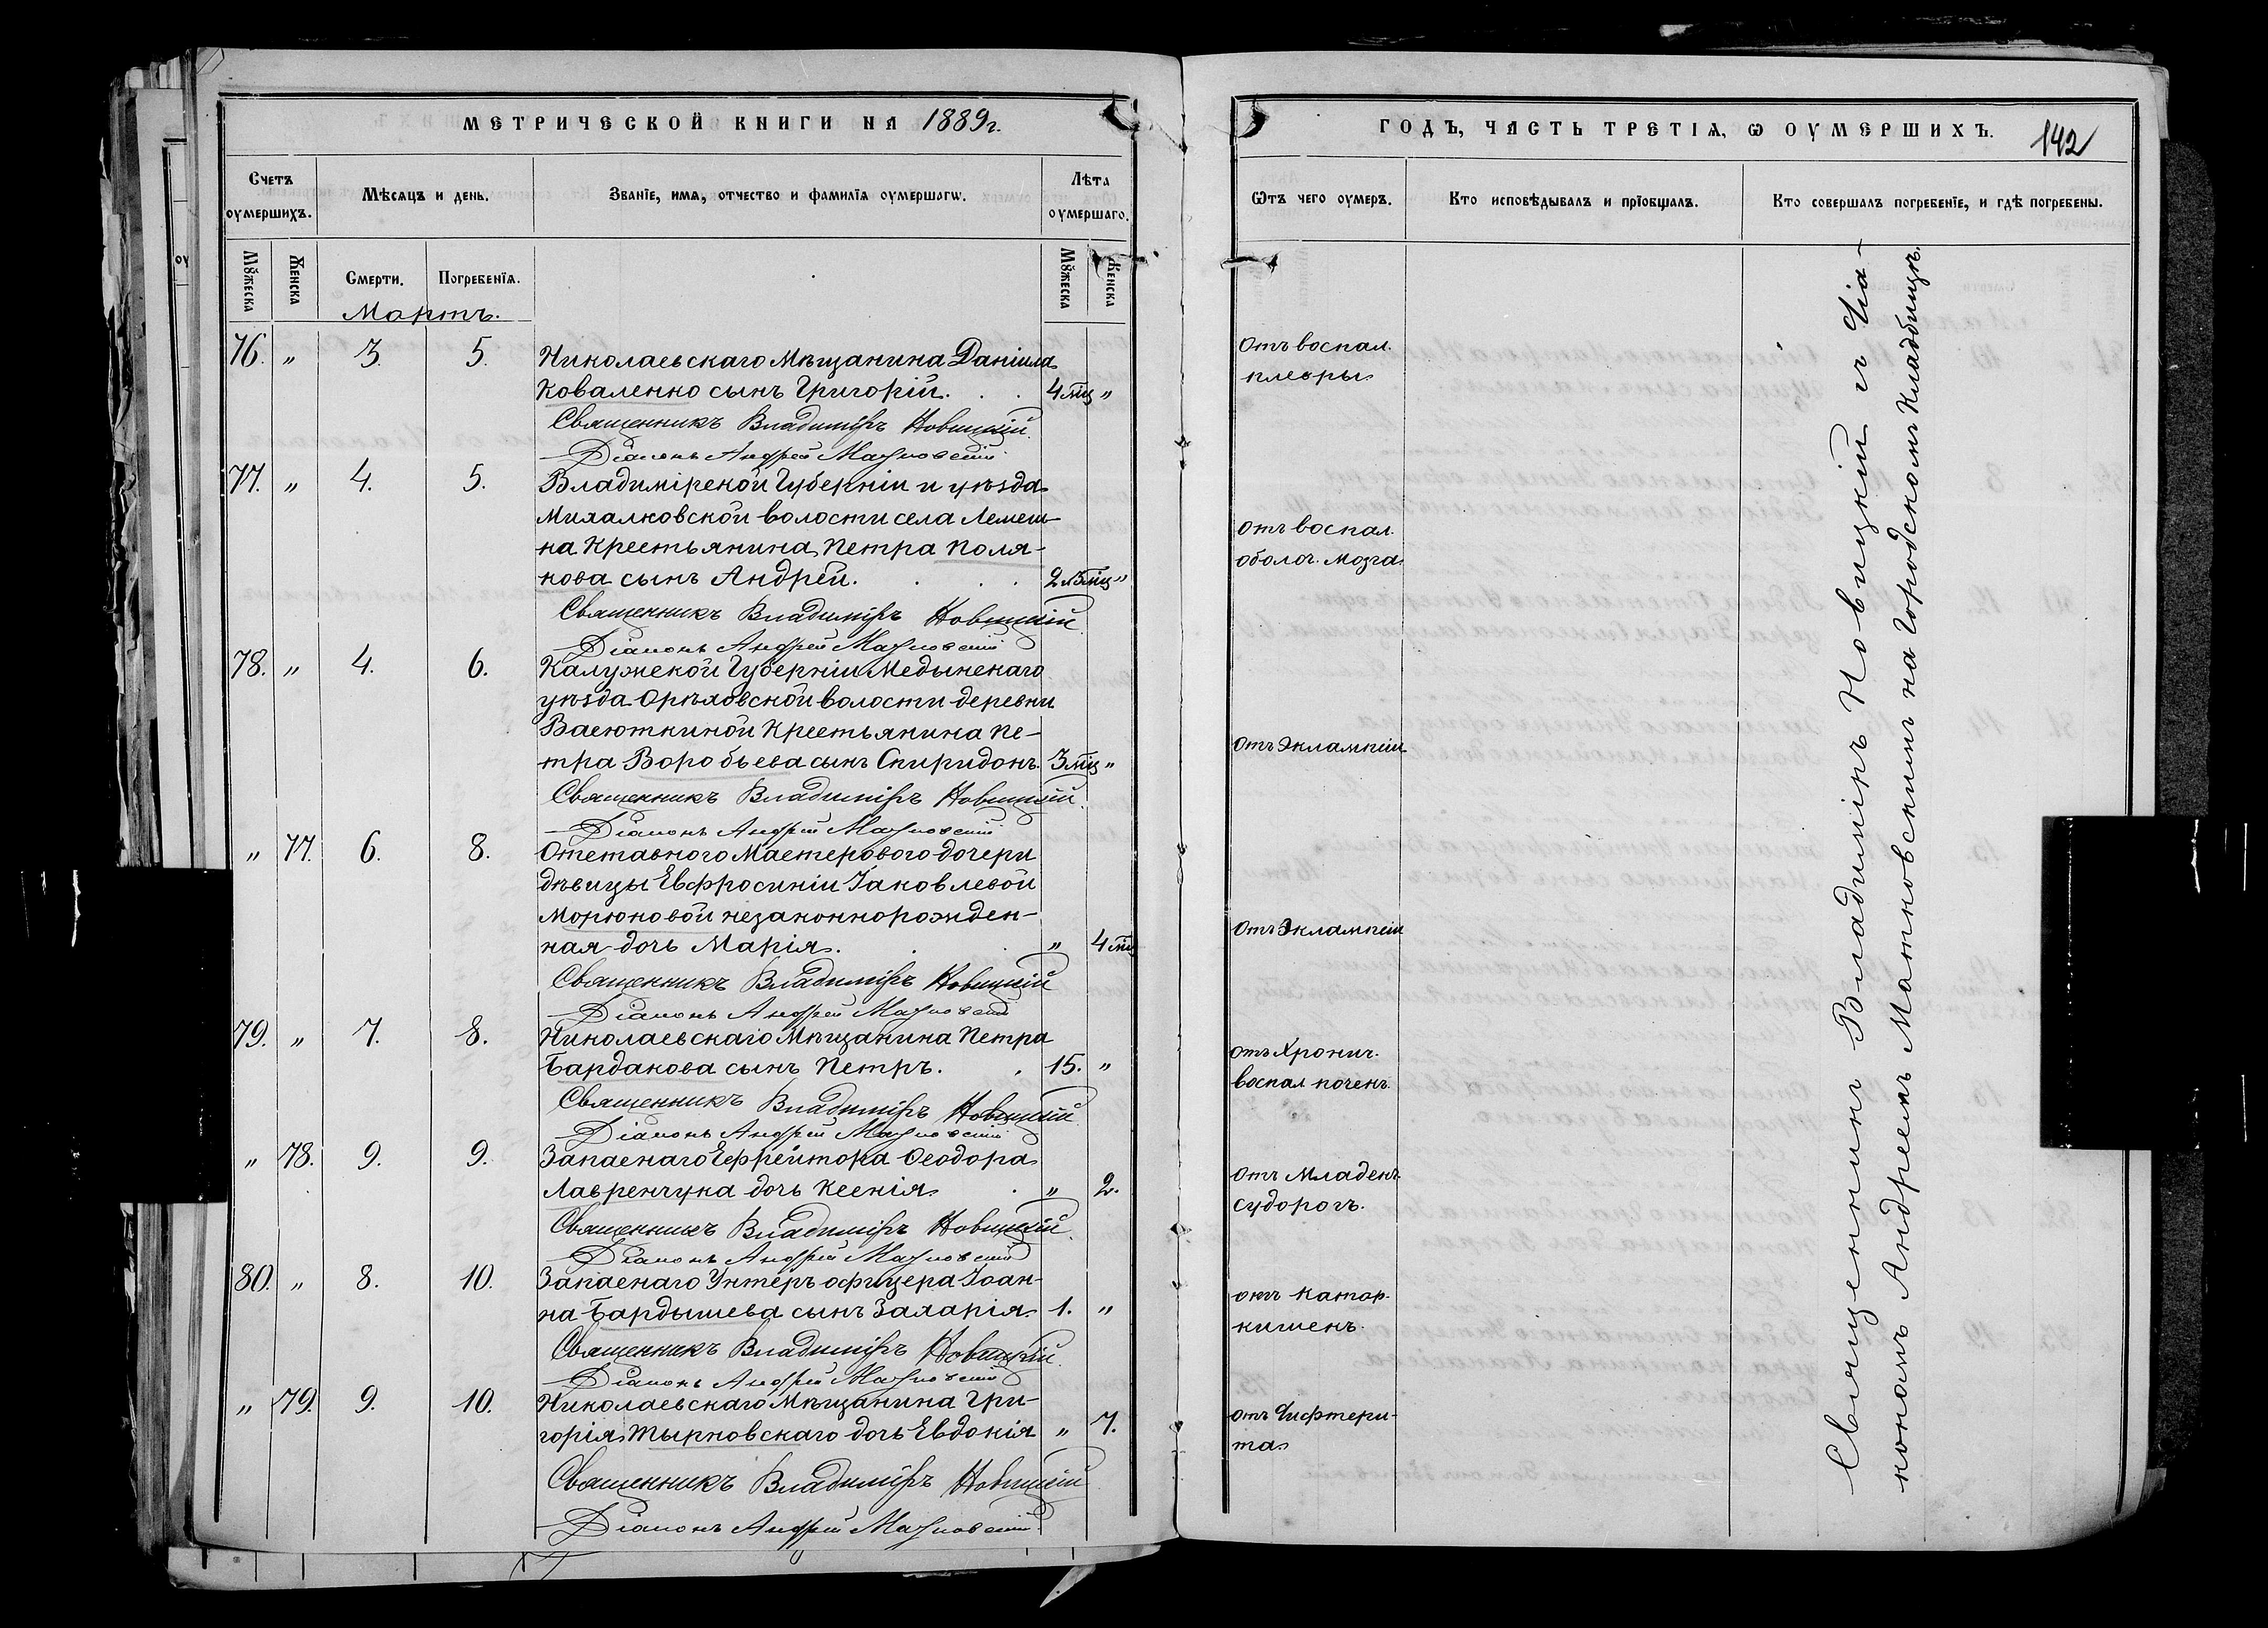 МЕТРИЧЕСКОЙ КНИГИ НА 1889 г.
Счетъ оумершихъ.
Мѣсяцъ и день.
Званіе, имя, отчество и фамилія оумершагѡ.
Лѣта оумершаго.
Мꙋжеска
Женска
Смерти.
Погребенія.
Мꙋжеска
Женска
Мартъ.
76. " 3. 5. Николаевскаго Мѣщанина Даніила
Коваленко сынъ Григорій. 4 мц "
Священникъ Владиміръ Новицкій.
Діаконъ Андрей Матковскій
77. " 4. 5. Владимірской Губерніи и уѣзда
Михалковской волости села Лемеш-
на Крестьянина Петра Поля-
кова сынъ Андрей. 2 л 3 мц "
Священникъ Владиміръ Новицкій.
Діаконъ Андрей Матковскій
78. " 4. 6. Калужской Губерніи Медынскаго
уѣзда Орѣховской волости деревни
Васюткиной Крестьянина Пе-
тра Воробьева сынъ Спиридонъ. 3 мц "
Священникъ Владиміръ Новицкій.
Діаконъ Андрей Матковскій
" 77. 6. 8. Отставного Мастерового дочери
дѣвицы Евфросиніи Іаковлевой
Морюновой незаконнорожден-
ная дочь Марія. " 4 мц
Священникъ Владиміръ Новицкій
Діаконъ Андрей Матковскій
79. " 7. 8. Николаевскаго Мѣщанина Петра
Бардакова сынъ Петръ. 15. "
Священникъ Владиміръ Новицкій.
Діаконъ Андрей Матковскій
" 78. 9. 9. Запаснаго Ефрейтора Ѳеодора
Лавренчука дочь Ксенія. " 2.
Священникъ Владиміръ Новицкій.
Діаконъ Андрей Матковскій
80. " 8. 10. Запаснаго Унтеръ офицера Іоан-
на Бардышева сынъ Захарія. 1. "
Священникъ Владиміръ Новицкій.
Діаконъ Андрей Матковскій
" 79. 9. 10. Николаевскаго Мѣщанина Гри-
горія Тырновскаго дочь Евдокія " 7.
Священникъ Владиміръ Новицкій
Діаконъ Андрей Матковскій
ГОДЪ, ЧАСТЬ ТРЕТІЯ, Ѡ ОУМЕРШИХЪ.
142
Ѿтъ чего оумеръ.
Кто исповѣдывалъ и пріобщалъ.
Кто совершалъ погребеніе, и гдѣ погребены.
Отъ воспал.
плевры
Отъ воспал.
оболоч. мозга
Отъ Эклампсіи
Отъ Эклампсіи
отъ Хронич.
воспал почекъ.
отъ Младен.
судорогъ.
отъ Катар.
кишекъ.
отъ Дифтери-
та
Священникъ Владиміръ Новицкій съ Діа-
кономъ Андреемъ Матковскимъ на Городскомъ кладбищѣ.